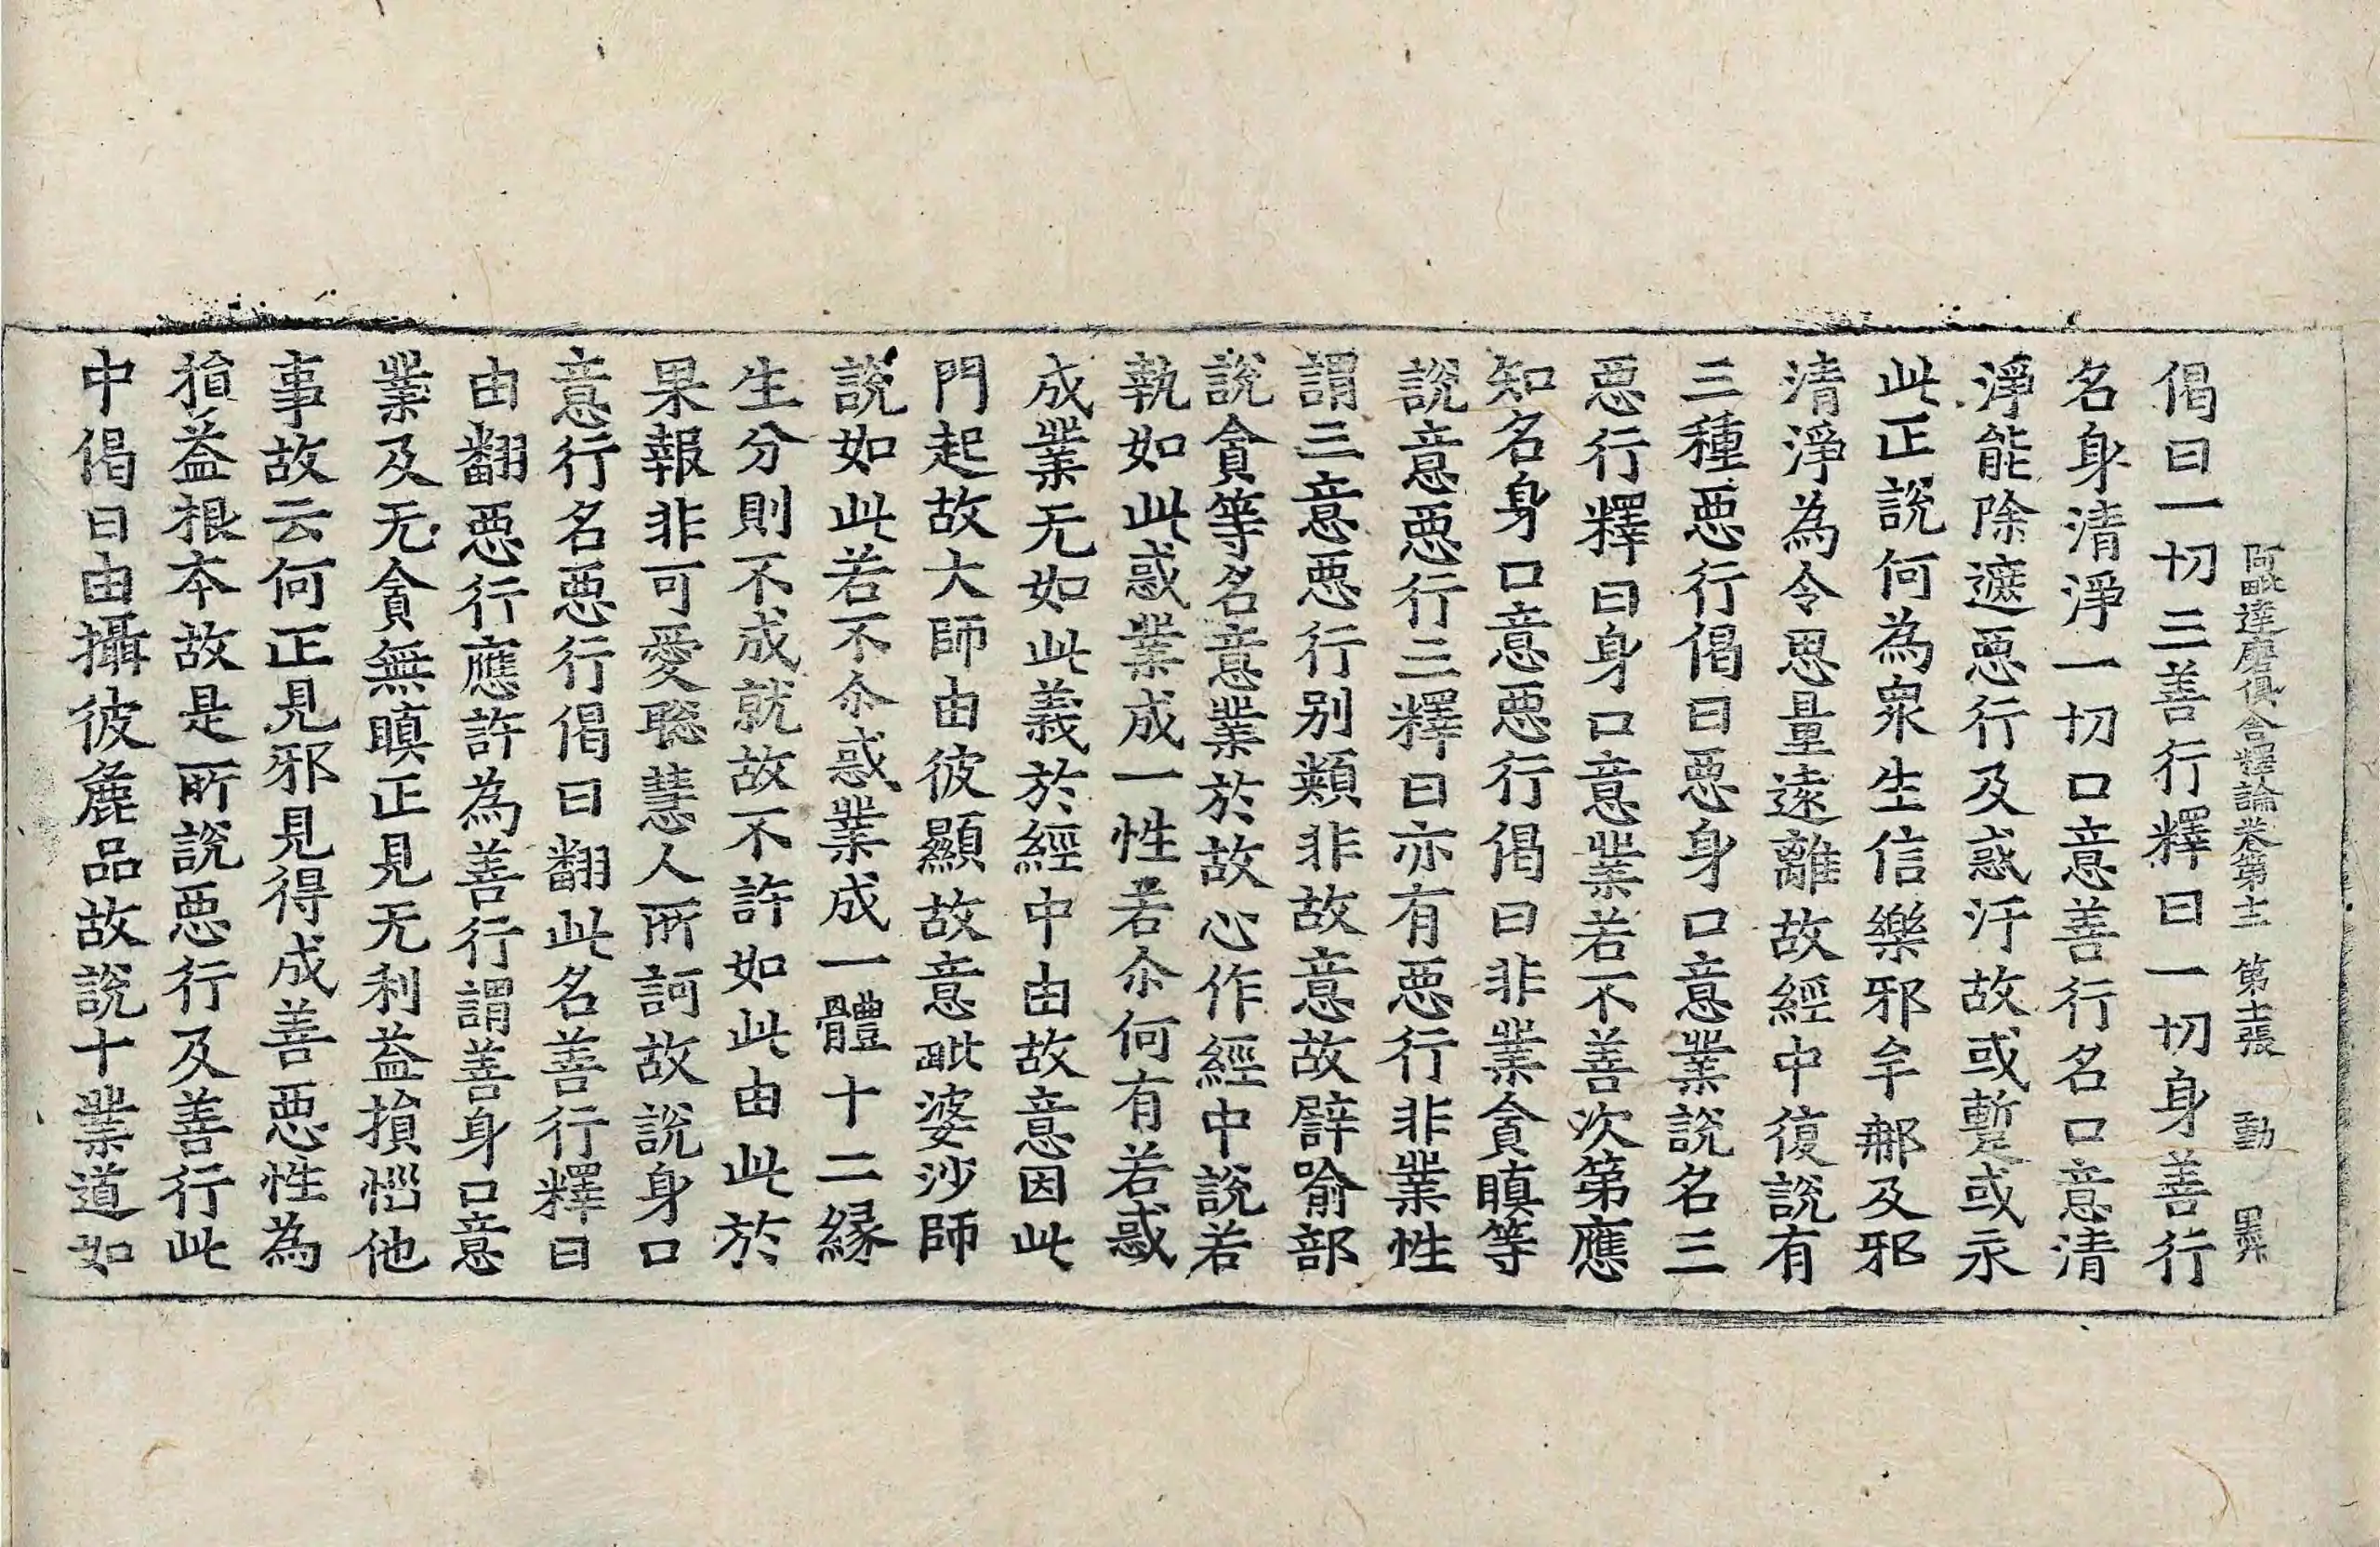 阿毗達磨俱舍釋論卷第十二 第十二張 動
偈曰一切三善行釋曰一切身善行
名身清淨一切口意善行名口意清
淨能除遮惡行及惑汙故或暫或永
此正說何為衆生信樂邪牟那及邪
清淨為令思量遠離故經中復說有
三種惡行偈曰惡身口意業說名三
惡行釋曰身口意業若不善次第應
知名身口意惡行偈曰非業貪瞋等
說意惡行三釋曰亦有惡行非業性
謂三意惡行別類非故意故譬喻部
說貪等名意業於故心作經中說若
執如此惑業成一性若尒何有若惑
成業无如此義於經中由故意因此
門起故大師由彼顯故意毗婆沙師
說如此若不尒惑業成一體十二緣
生分則不成就故不許如此由此於
果報非可愛聡慧人所訶故說身口
意行名惡行偈曰翻此名善行釋曰
由翻惡行應許為善行謂善身口意
業及无貪無瞋正見无利益損惱他
事故云何正見邪見得成善惡性為
損益根本故是所說惡行及善行此
中偈曰由攝彼麁品故說十業道如